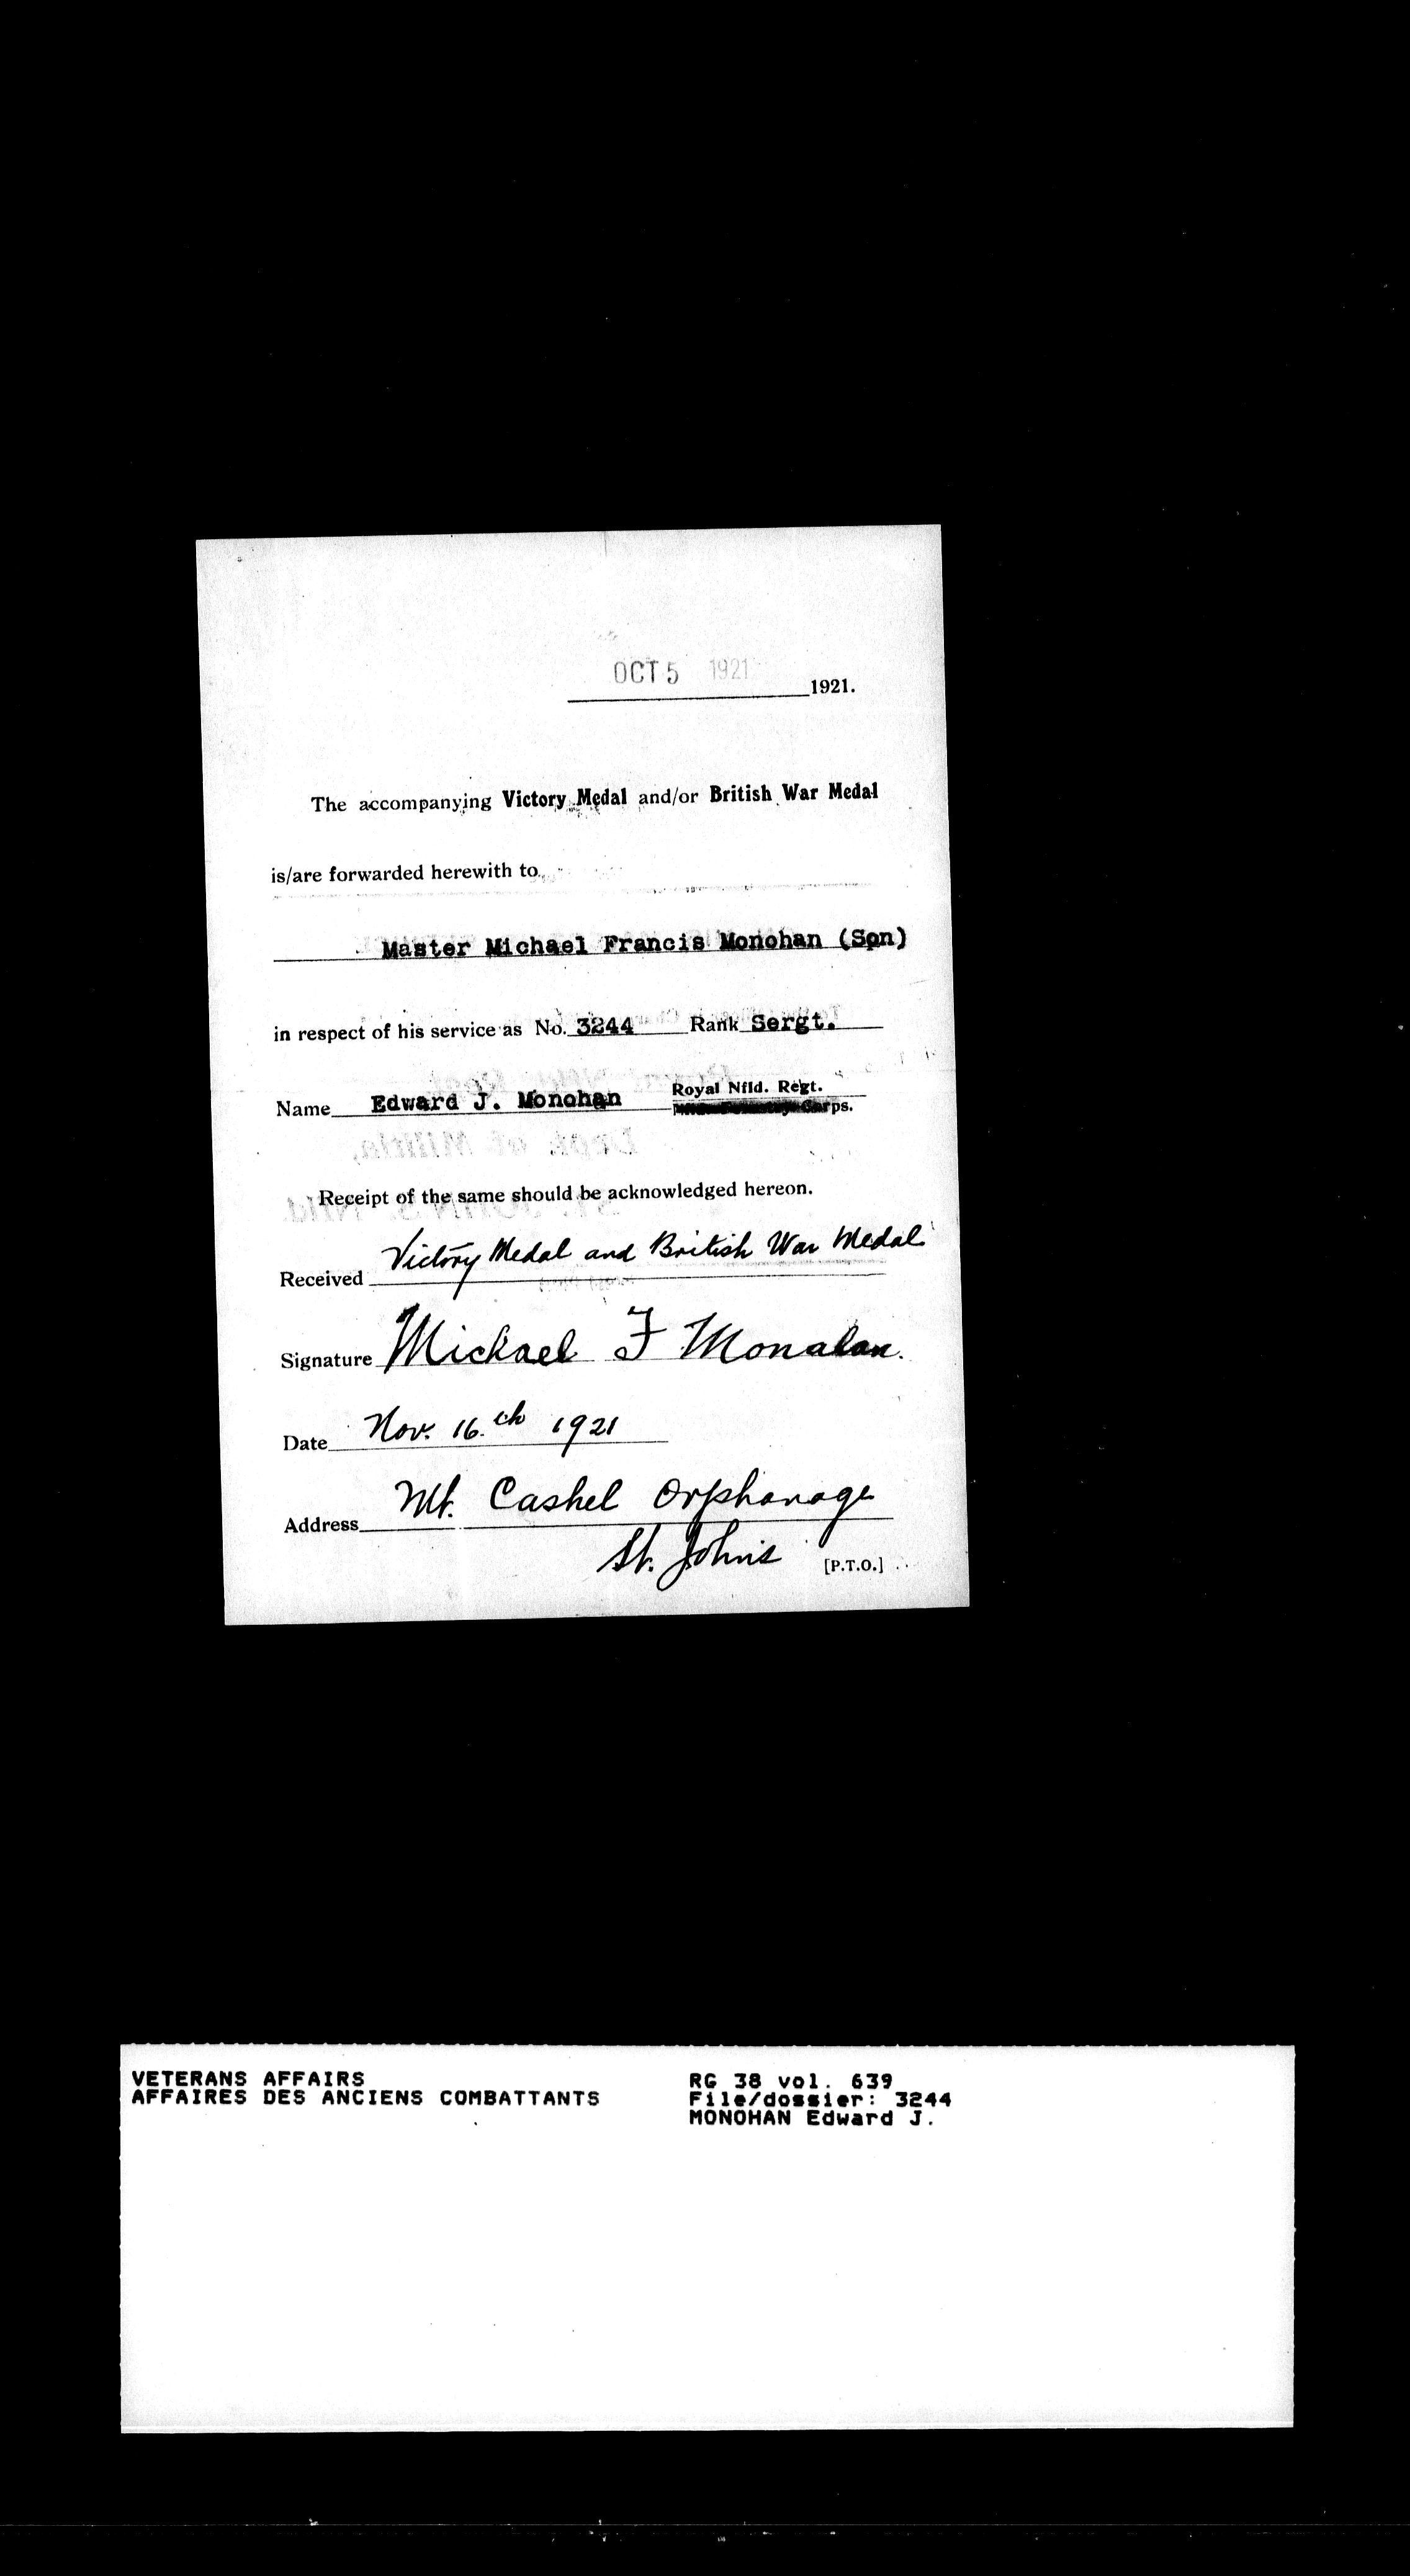 OCT 5 1921
1921.
The accompanying Victory Medal and/or British War Medal
is/are forwarded herewith to
Master Michael Francis Monohan (Son)
in respect of his service as No. 3244 Rank Sergt.
Name Edward J. Monohan Royal Nfld. Regt.
Corps.
Receipt of the same should be acknowledged hereon.
Received Victory Medal and British War Medal
Signature Michael F Monahan.
Date Nov. 16th 1921
Address Mt. Cashel Orphanage
St. John's [P.T.O.]
VETERANS AFFAIRS RG 38 vol. 639
AFFAIRES DES ANCIENS COMBATTANTS File/dossier: 3244
MONOHAN Edward J.